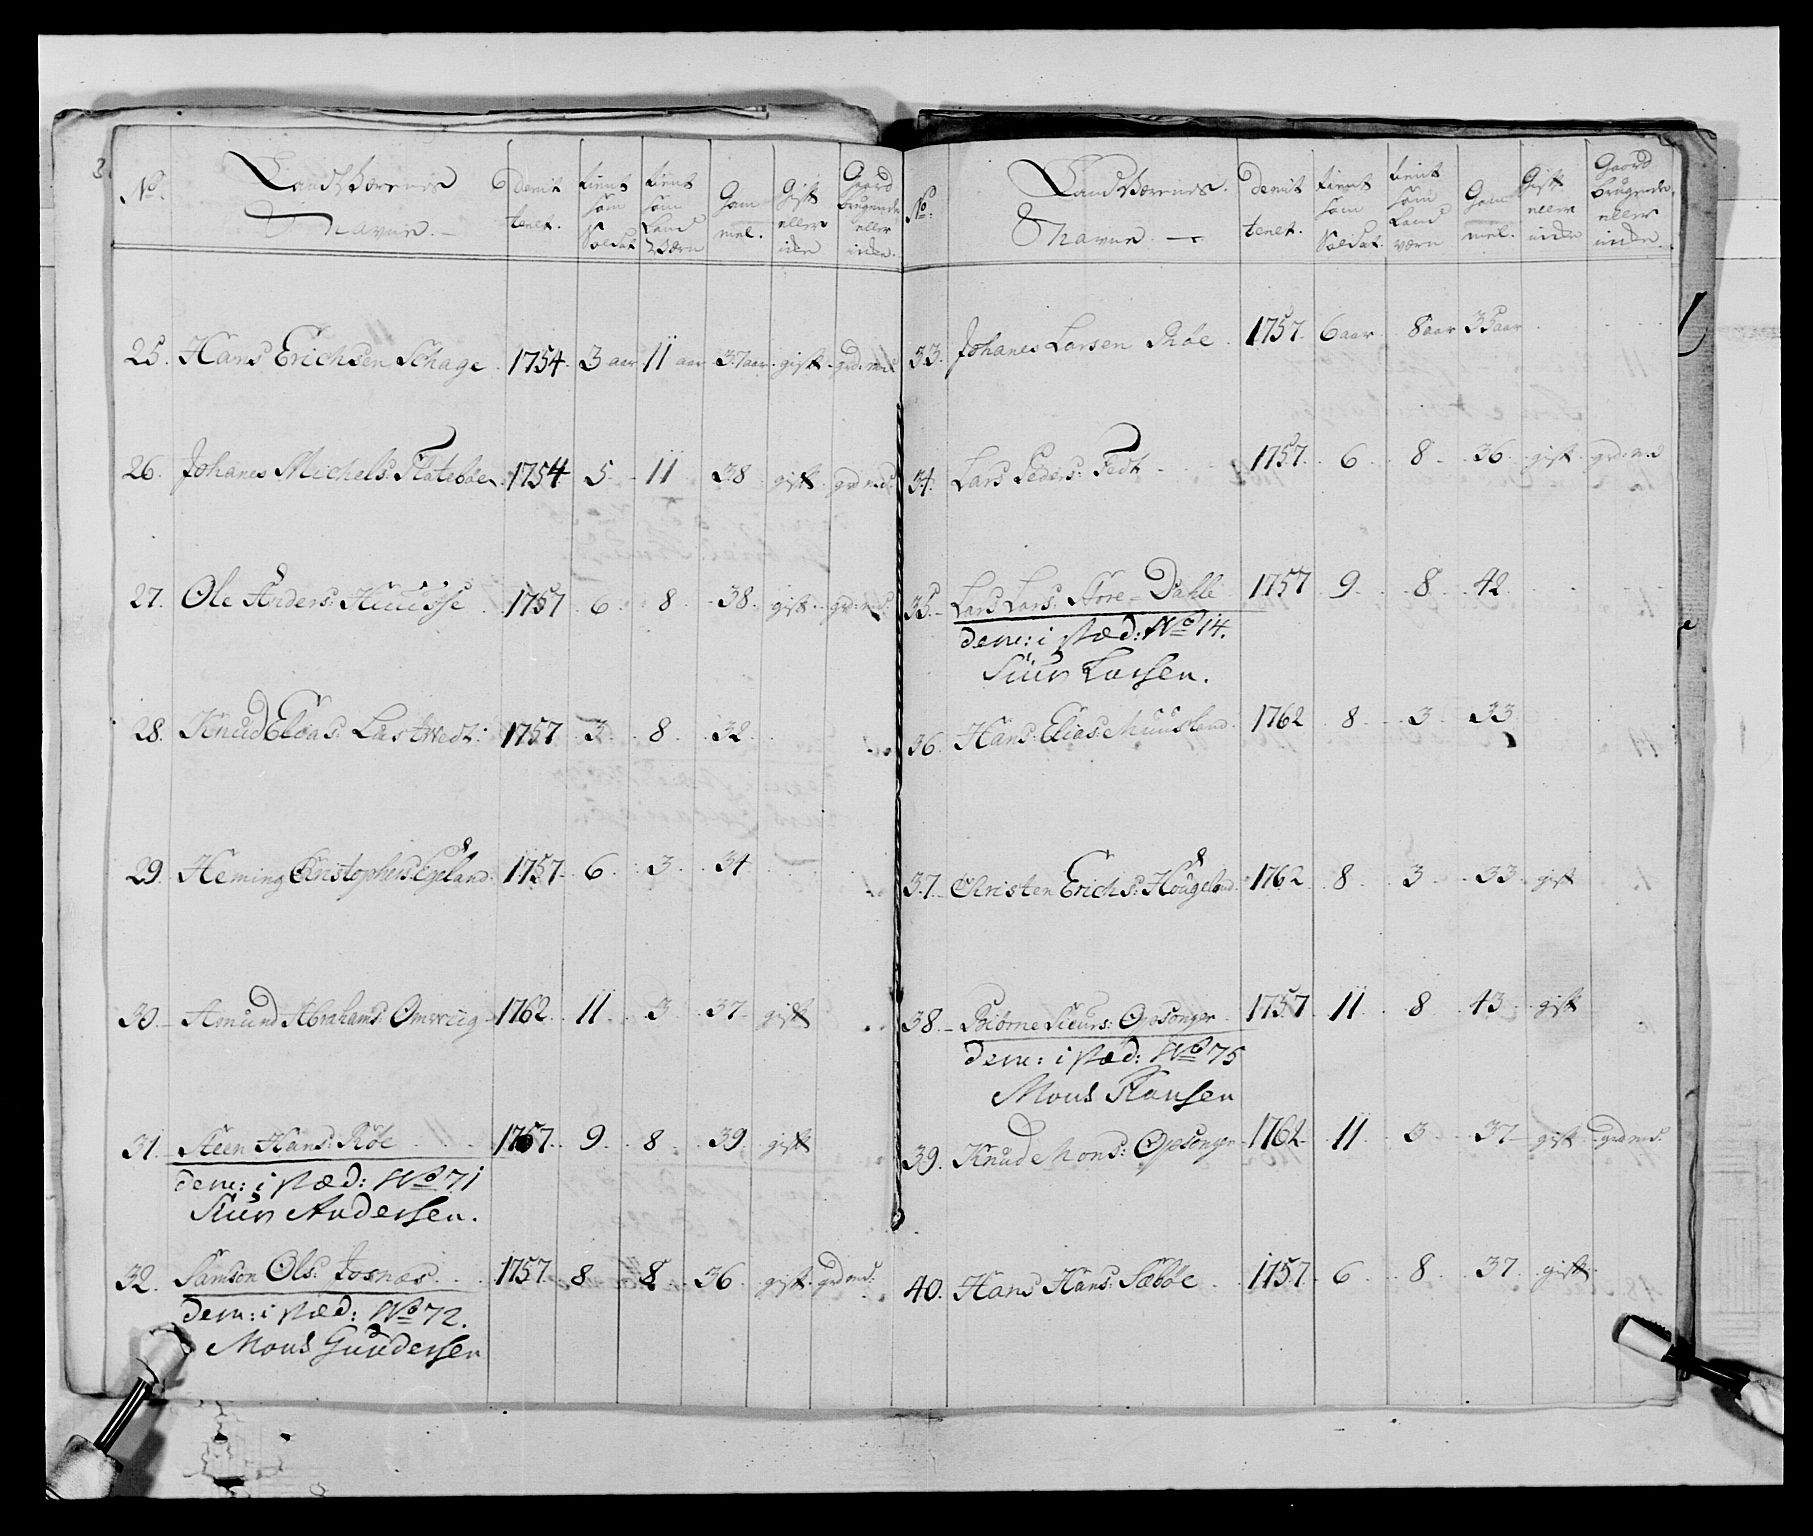 No. Landværenes Navne. Demit tenet. tient som Soldat. tient som Land Værn Gam mel. Gift eller iche Gaard brugende eller inde.
25. Hans Erichsen Schage 1754 3 aar 11 aar 37 aar. gift. grd: md
26. Johanes Michels: Flatebøe 1754 5 11 38 gift grd md:
27. Ole Anders: Huusse 1757 6 8 38. gift. grd: md:
28. Knud Eloas: Lastwedt: 1757 3 8 32
29. Heming Christophers: Egeland. 1757 6 3 34
30. Asmund Abrahams: Omvrug 1762 11 3 37 gift
31. Steen Hans: Røe 1757 9 8 39 gift
dem: i stæd: No 71
Siur Andersen.
32. Samson Ols: Josnæs 1757 8 8 36 gift. grd md:
dem: i stæd: No 72.
Mons Gundersen
No: Landværenes Navne. Demit tenet. tient som Soldat. tient som Land værn Gam mel. Gift eller inde Gaard brugende eller inde.
33. Johanes Larsen Røe 1757 6 aar 8 aar 35 aar
34. Lars Peders: Fedt 1757 6 8 36 gift grd: md
35. Lars Lars: Nore-Dahle 1757 9 8 42
dem: i stæd: No 14.
Siur Larsen.
36. Hans: Elias: Muusland 1762 8 3 33
37. Christen Erichs: Hougeland. 1762 8 3 33 gift
38. Biörne Sieurs: Opsonger 1757 11 8 43 gift
dem: i stæd: No 75
Mons Hansen
39. Knud Mons: Opsonger 1762 11 3 37 gift grd md:
40. Hans Hans: Sæbøe 1757 6 8 37 gift